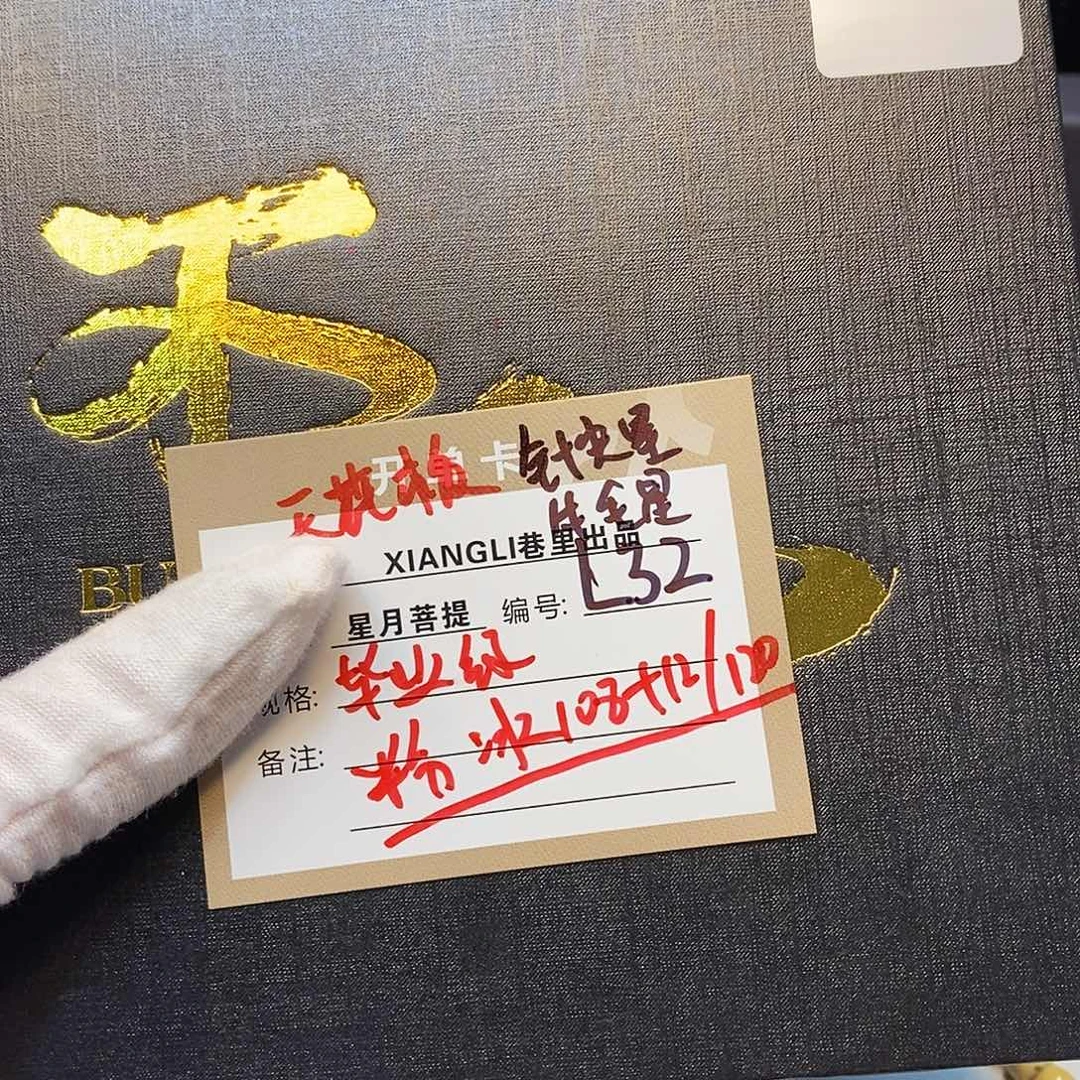 不
BU
开单卡
天花板 针尖星
牛毛星
XIANGLI巷里出品
星月菩提 编号: L32
规格: 毕业级
备注: 粉冰108+12/120